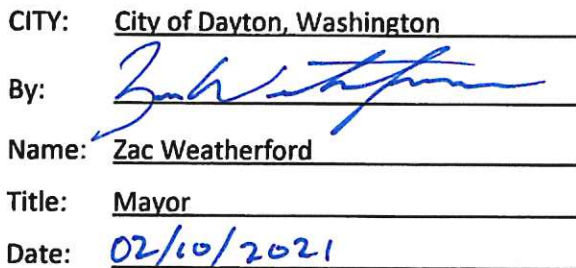 CITY: City of Dayton, Washington
By:
Name: Zac Weatherford
Title: Mayor
Date: 02/10/2021